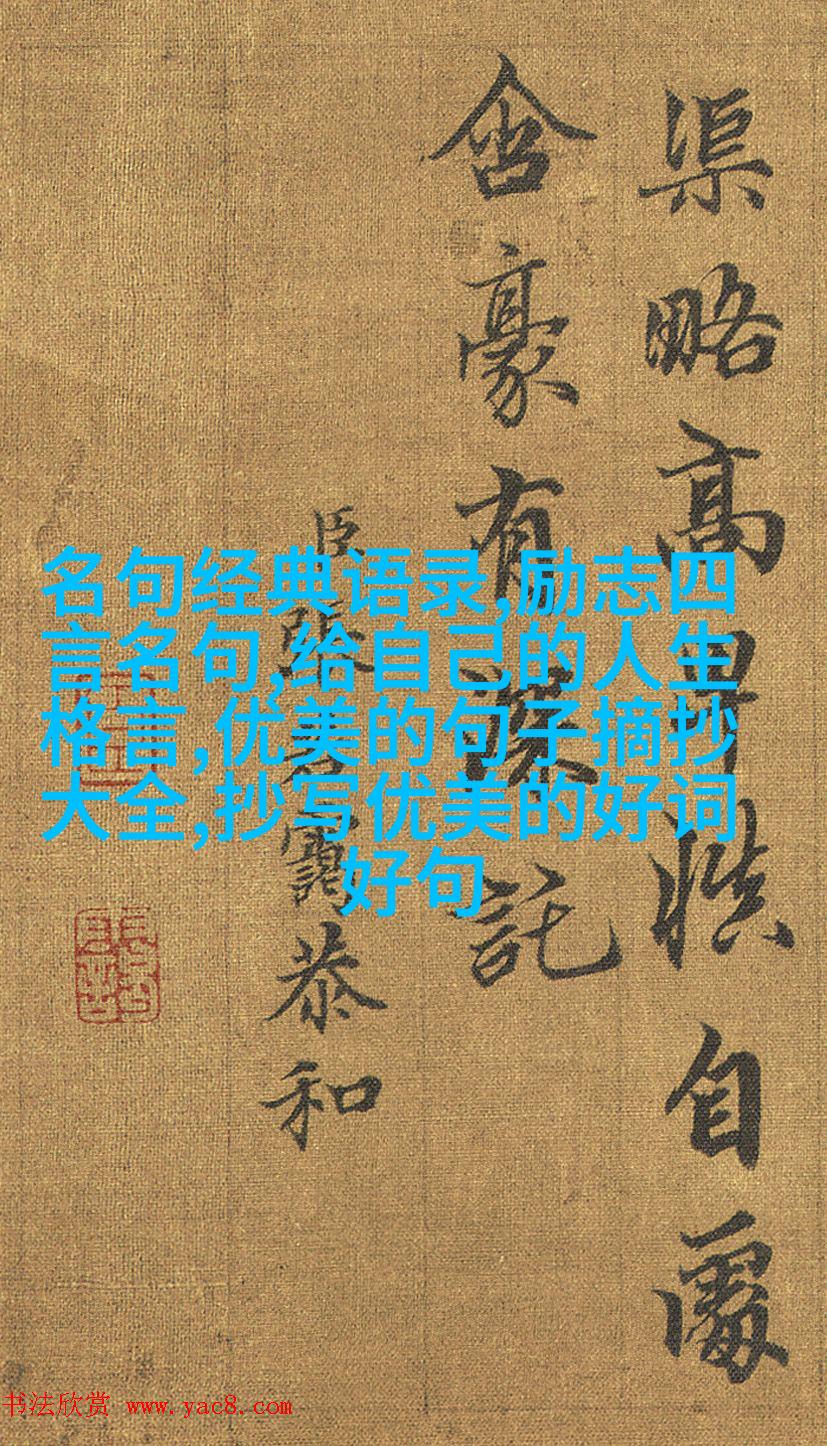 渠略高卑慎自處
含豪有深託
臣張若靄恭和
名句经典语录,励志四
言名句,给自己的人生
格言,优美的句子摘抄
大全,抄写优美的好词
好句
书法欣赏 www.yac8.com